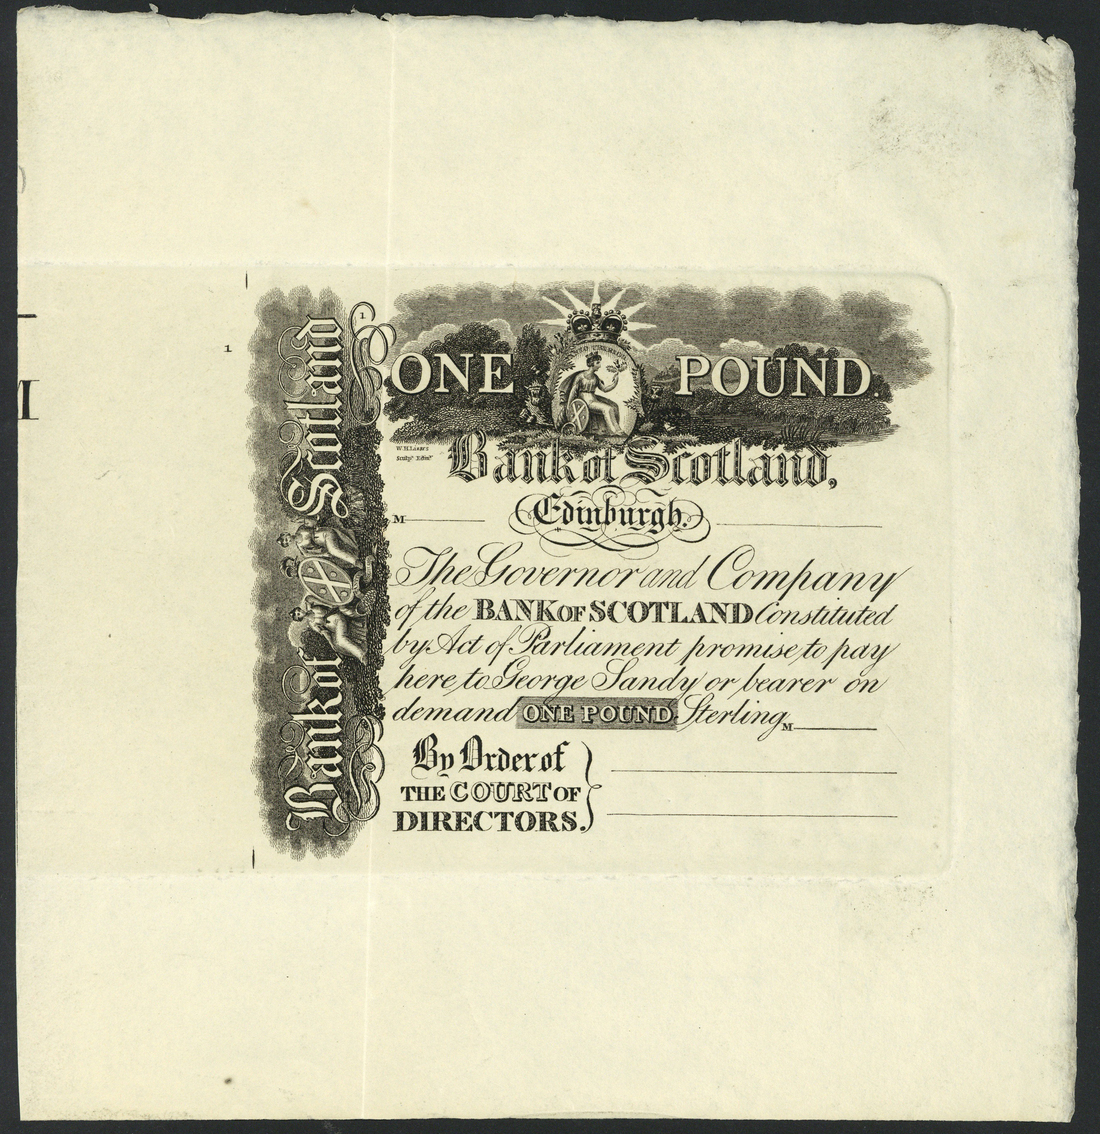 1
1
ONE POUND.
W.H.Lizars
Sculpt. Edinr.
Bank of Scotland,
M
Edinburgh.
The Governor and Company
of the BANK OF SCOTLAND Constituted
by Act of Parliament promise to pay
here to George Sandy or bearer on
demand ONE POUND Sterling
M
By Order of
THE COURT OF
DIRECTORS.
Bank of Scotland